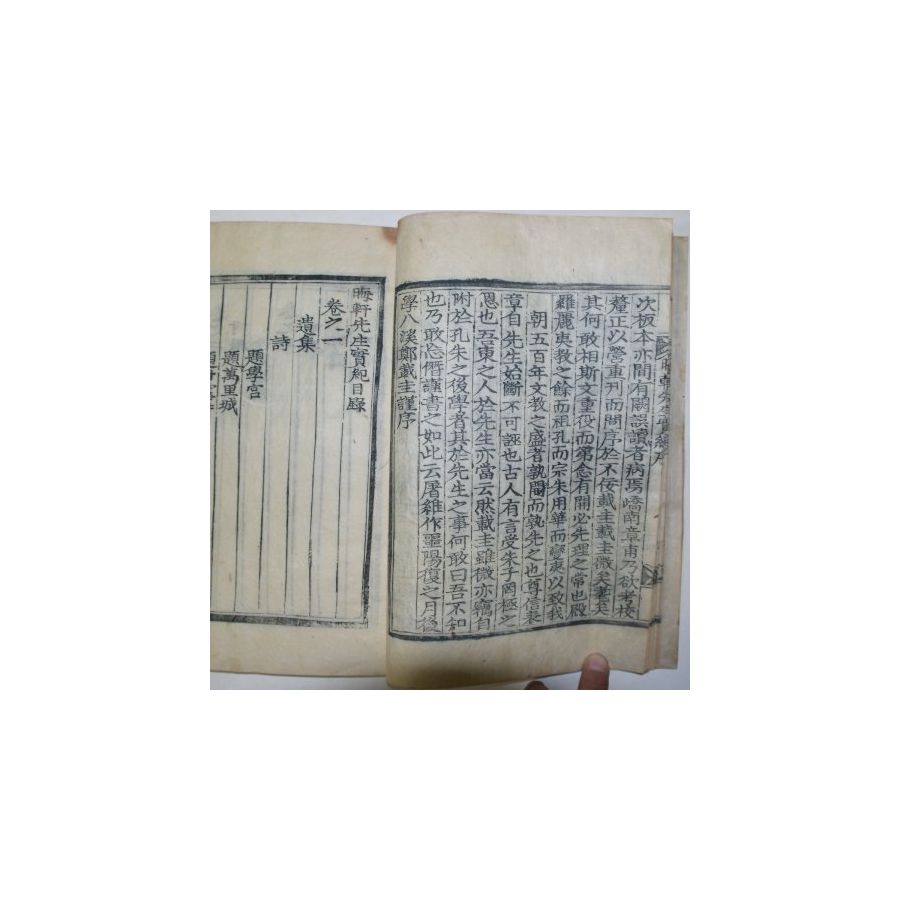 次板本亦間有闕誤讀者病焉嶠南章甫乃欲考校
釐正以營重刊而問序於不佞載圭載圭微矣耄矣
其何敢相斯文重役而第念有開必先理之常也殷
羅麗夷教之餘而祖孔而宗朱用華而變夷以致我
朝五百年文教之盛者孰闢而孰先之也尊信表
章自先生始斷不可誣也古人有言受朱子罔極之
恩也吾東之人於先生亦當云然載圭雖微亦竊自
附於孔朱之後學者其於先生之事何敢曰吾不知
也乃敢忘僭謹書之如此云屠維作噩陽復之月後
學八溪鄭載圭謹序
晦軒先生實紀目錄
卷之一
遺集
詩
題學宮
題萬里城